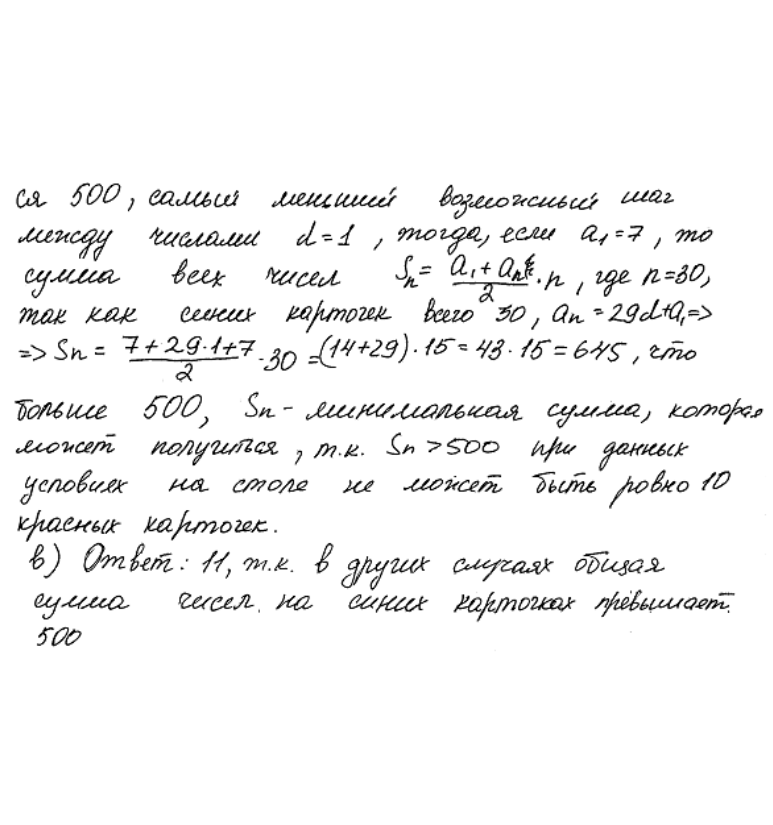 ся 500, самый меньший возможный шаг
между числами d=1, тогда, если a₁=7, то
сумма всех чисел Sₙ= (a₁+aₙ)/2 · n, где n=30,
так как синих карточек всего 30, aₙ=29d+a₁=>
=> Sₙ = (7+29·1+7)/2 · 30 =(14+29)·15=43·15=645, что
больше 500, Sₙ - минимальная сумма, которая
может получиться, т.к. Sₙ>500 при данных
условиях на столе не может быть ровно 10
красных карточек.
в) Ответ: 11, т.к. в других случаях общая
сумма чисел на синих карточках превышает
500